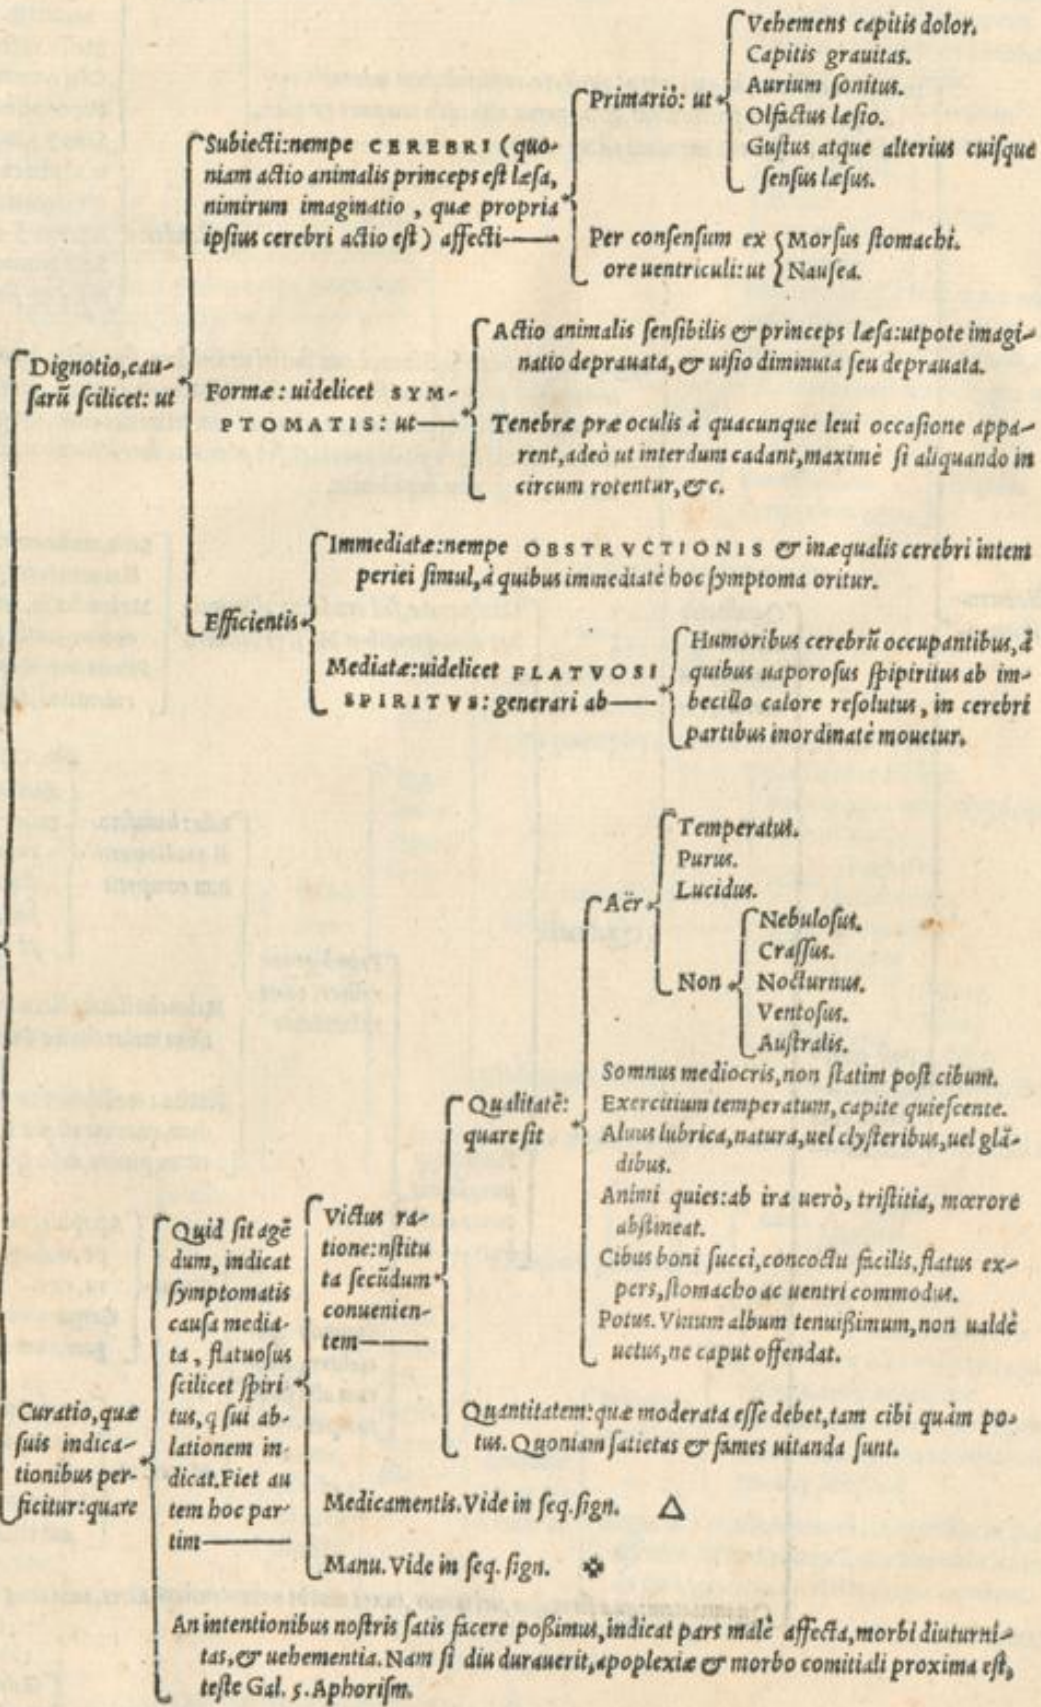 Vehemens capitis dolor.
Capitis grauitas.
Primariò: ut
Aurium ſonitus.
Olfactus læſio.
Guſtus atque alterius cuiſque
ſenſus læſus.
Subiecti:nempe CEREBRI (quo-
niam actio animalis princeps eſt læſa,
nimirum imaginatio, quæ propria
ipſius cerebri actio eſt) affecti
Per conſenſum ex
ore uentriculi: ut
Morſus ſtomachi.
Nauſea.
Dignotio, cau-
ſarũ ſcilicet: ut
Formæ: uidelicet SYM-
PTOMATIS: ut
Actio animalis ſenſibilis & princeps læſa:utpote imagi-
natio deprauata, & uiſio diminuta ſeu deprauata.
Tenebræ præ oculis à quacunque leui occaſione appa-
rent, adeò ut interdum cadant, maximè ſi aliquando in
circum rotentur, &c.
Efficientis
Immediatæ:nempe OBSTRVCTIONIS & inæqualis cerebri intem
periei ſimul, à quibus immediatè hoc ſymptoma oritur.
Mediatæ:uidelicet FLATVOSI
SPIRITVS: generari ab
Humoribus cerebrũ occupantibus, à
quibus uaporoſus ſpipiritus ab im-
becillo calore reſolutus, in cerebri
partibus inordinatè mouetur.
Curatio, quæ
ſuis indica-
tionibus per-
ficitur: quare
Quid ſit agẽ
dum, indicat
ſymptomatis
cauſa media-
ta, flatuoſus
ſcilicet ſpiri
tus, q ſui ab-
lationem in-
dicat. Fiet au
tem hoc par-
tim
Victus ra-
tione:nſtitu
ta ſecũdum
conuenien-
tem
Qualitatẽ:
quare ſit
Aër
Temperatus.
Purus.
Lucidus.
Non
Nebuloſus.
Craſſus.
Nocturnus.
Ventoſus.
Auſtralis.
Somnus mediocris, non ſtatim poſt cibum.
Exercitium temperatum, capite quieſcente.
Aluus lubrica, natura, uel clyſteribus, uel glã-
dibus.
Animi quies: ab ira uerò, triſtitia, mœrore
abſtineat.
Cibus boni ſucci, concoctu facilis, flatus ex-
pers, ſtomacho ac uentri commodus.
Potus. Vinum album tenuißimum, non ualdè
uetus, ne caput offendat.
Quantitatem: quæ moderata eſſe debet, tam cibi quàm po-
tus. Quoniam ſatietas & fames uitanda ſunt.
Medicamentis. Vide in ſeq. ſign. △
Manu. Vide in ſeq. ſign. ✤
An intentionibus noſtris ſatis facere poßimus, indicat pars malè affecta, morbi diuturni-
tas, & uehementia. Nam ſi diu durauerit, apoplexiæ & morbo comitiali proxima eſt,
teſte Gal. 5. Aphoriſm.